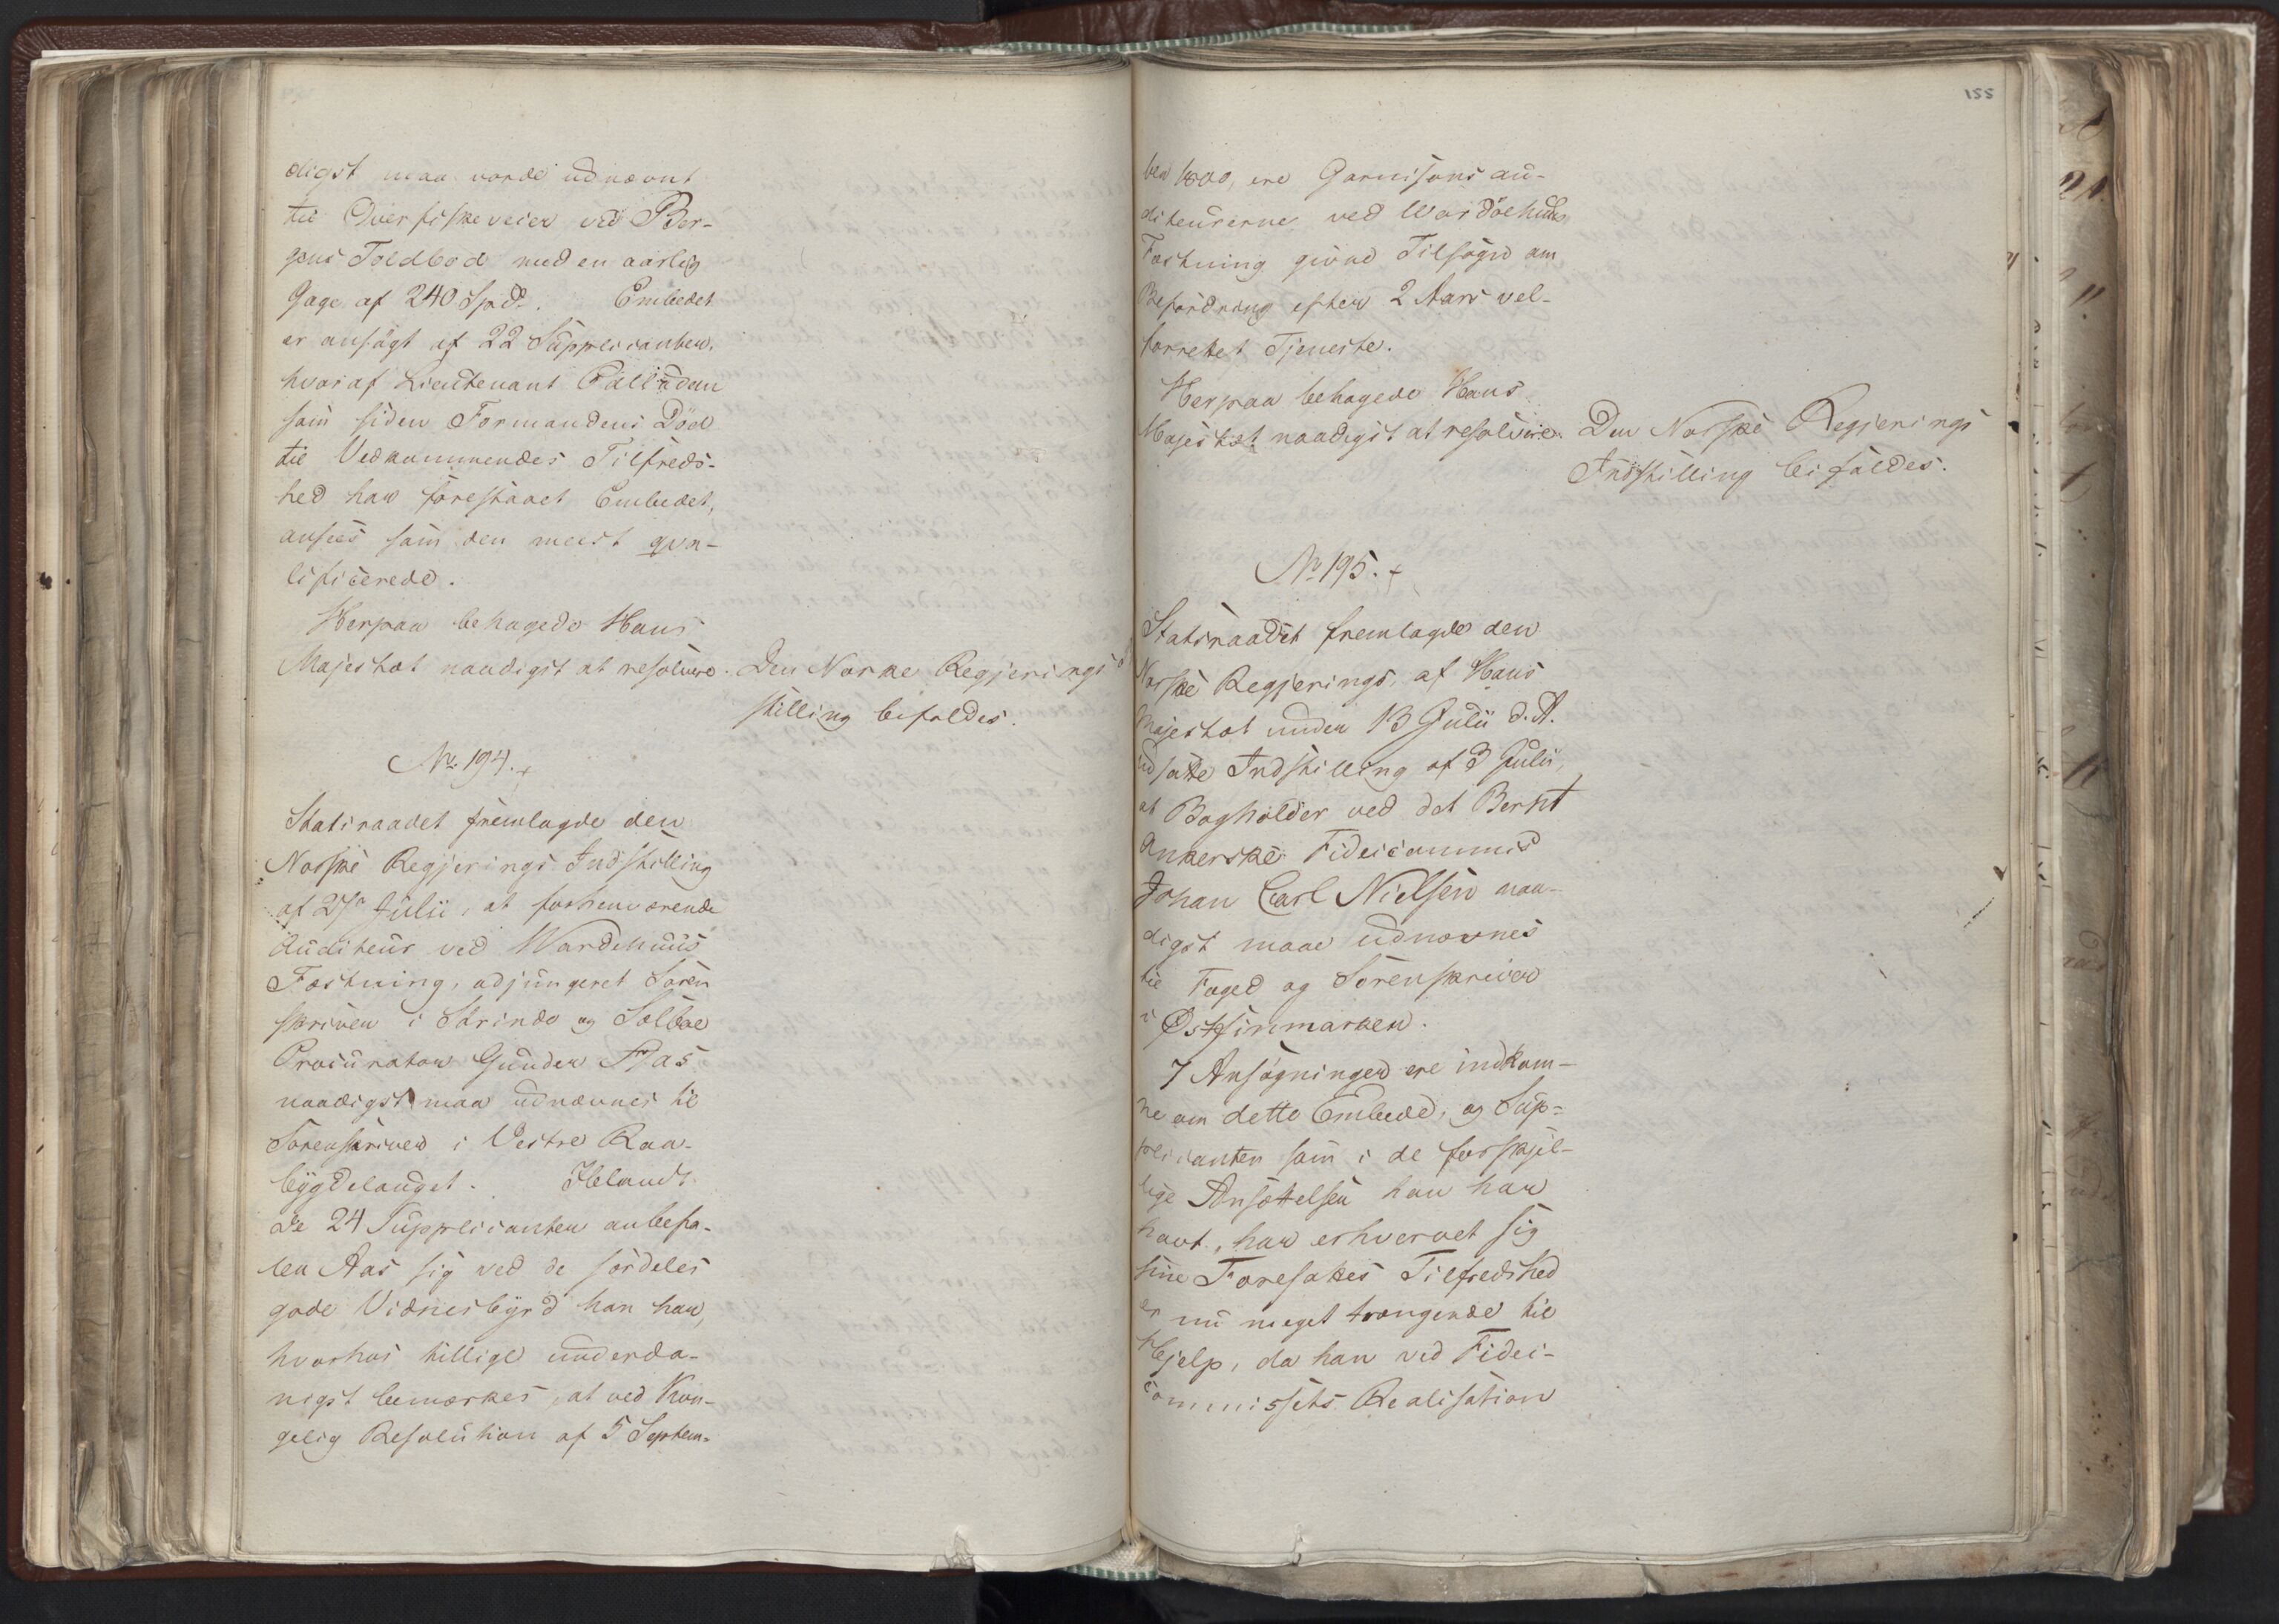 digst maa vorde udnævnt
til Overfiskeveier ved Ber-
gens Toldbod med en aarlig
Gage af 240 Spd. Embedet
er ansøgt af 22 Supplicanter,
hvoraf Lieutenant Palludan
som siden Formandens Død
til Vedkommendes Tilfreds-
hed har forestaaet Embedet,
ansees som den meest qva-
lificerede.
Herpaa behagede Hans
Majestæt naadigst at resolvere. Den Norske Regjerings
stilling bifaldes.
No. 194.
Statsraadet fremlagde den
Norske Regjerings Indstilling
af 27 Julii, at forhenværende
Auditeur ved Wardehuus
Fæstning, adjungeret Soren
skriver i Strinde og Selboe
Procurator Gunder Aas
naadigst maa udnævnes til
Sorenskriver i Vestre Raa-
bygdelauget. Iblandt
de 24 Supplicanter anbefa-
ler Aas sig ved de særdeles
gode Vidnesbyrd han har,
hvorhos tillige underda-
nigst bemærkes, at ved Kon-
gelig Resolution af 5 Septem-
155
ber 1800, ere Garnisons au-
diteurerne ved Wardøehuus
Fæstning givne Tilsagn om
Befordring efter 2 Aars vel-
forrettet Tjeneste.
Herpaa behagede Hans
Majestæt naadigst at resolvere. Den Norske Regjerings
Indstilling bifaldes.
No 195.
Statsraadet fremlagde den
Norske Regjerings, af Hans
Majestæt under 13 Julii d. A.
udsatte Indstilling af 3 Julii,
at Bogholder ved det Bernt
Ankerske Fideicommis
Johan Carl Nielsen naa-
digst maae udnævnes
til Foged og Sorenskriver
i Østfinmarken.
7 Ansøgninger ere indkom-
ne om dette Embede, og Sup-
plicanten som i de forskjel-
lige Ansættelser han har
havt, har erhvervet sig
sine Foresattes Tilfredshed
er nu meget trængende til
Hjelp, da han ved Fidei-
commissets Realisation